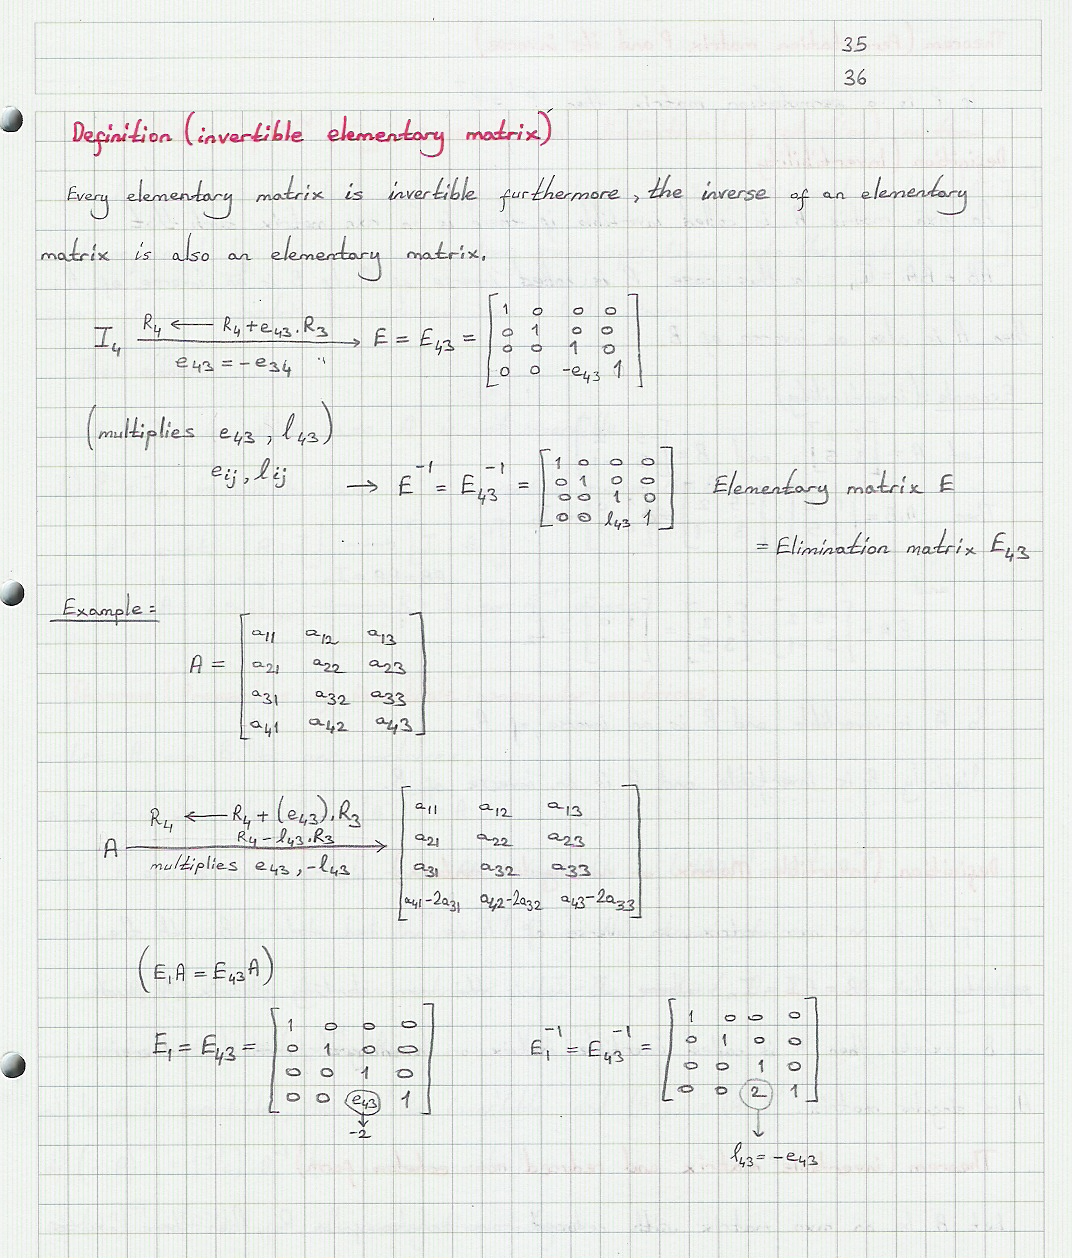 35
36
Definition (invertible elementary matrix)
Every elementary matrix is invertible furthermore, the inverse of an elementary
matrix is also an elementary matrix.
R4 ← R4+e43.R3
I4 → E = E43 =
e43 = -e34
1 0 0 0
0 1 0 0
0 0 1 0
0 0 -e43 1
(multiplies e43, l43)
eij, lij
→ E⁻¹ = E43⁻¹ =
1 0 0 0
0 1 0 0
0 0 1 0
0 0 l43 1
Elementary matrix E
= Elimination matrix E43
Example =
A =
a11 a12 a13
a21 a22 a23
a31 a32 a33
a41 a42 a43
R4 ← R4 + (e43).R3
R4 - l43.R3
A →
multiplies e43, -l43
a11 a12 a13
a21 a22 a23
a31 a32 a33
a41-2a31 a42-2a32 a43-2a33
(E1A = E43A)
E1 = E43 =
1 0 0 0
0 1 0 0
0 0 1 0
0 0 e43 1
↓
-2
E1⁻¹ = E43⁻¹ =
1 0 0 0
0 1 0 0
0 0 1 0
0 0 2 1
↓
l43 = -e43